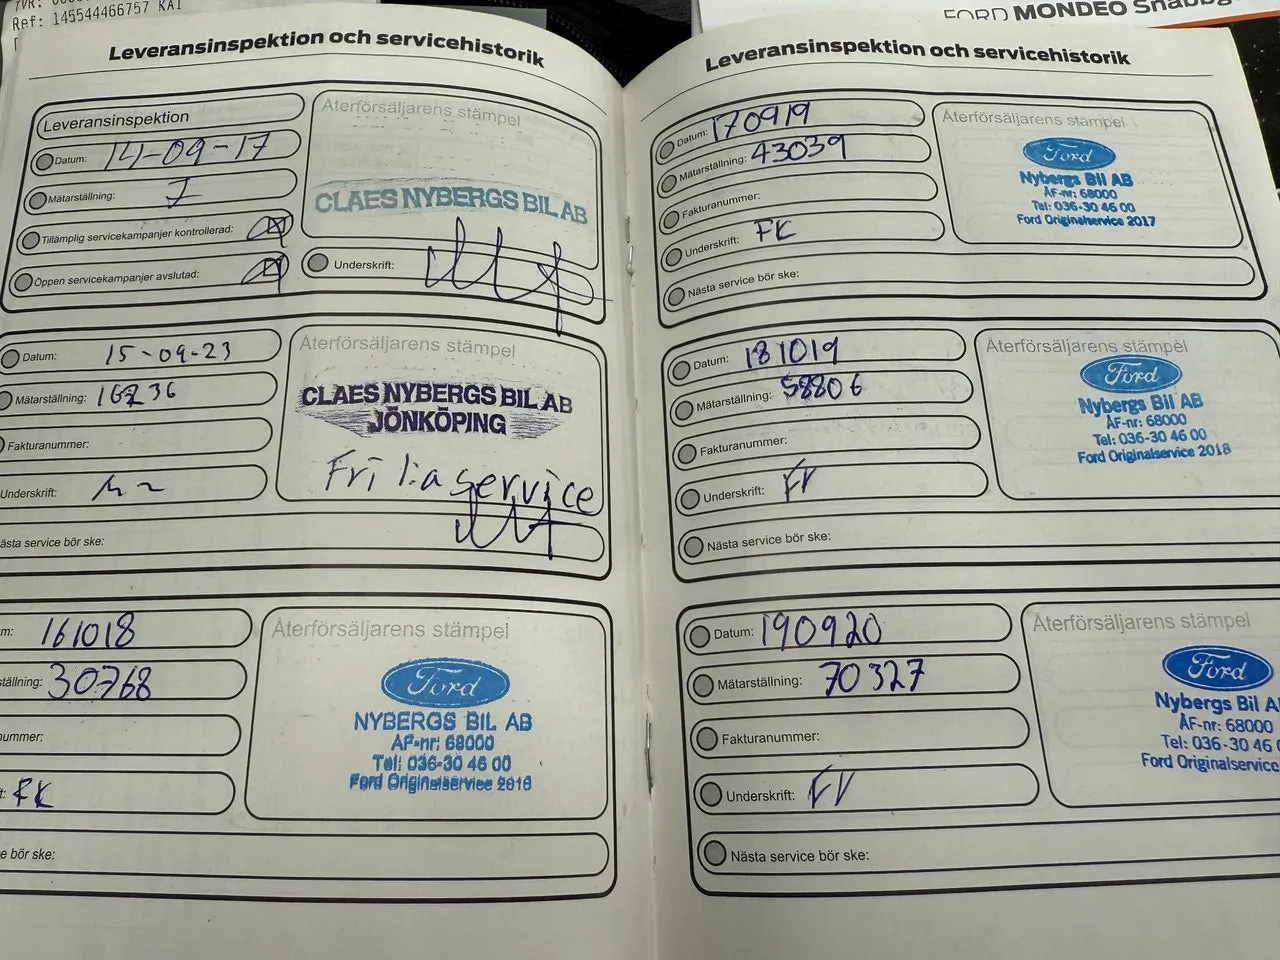 Ref: 145544466757 KAI
FORD MONDEO
Leveransinspektion och servicehistorik
Leveransinspektion
Datum: 14-09-17
Mätarställning: 7
Tillämplig servicekampanjer kontrollerad:
Öppen servicekampanjer avslutad:
Återförsäljarens stämpel
CLAES NYBERGS BIL AB
Underskrift:
Datum: 15-09-23
Mätarställning: 16236
Fakturanummer:
Underskrift:
Återförsäljarens stämpel
CLAES NYBERGS BIL AB
JÖNKÖPING
Fri 1:a service
ästa service bör ske:
m: 161018
tällning: 30768
nummer:
t: FK
Återförsäljarens stämpel
Ford
NYBERGS BIL AB
ÅF-nr: 68000
Tel: 036-30 46 00
Ford Originalservice 2016
e bör ske:
Leveransinspektion och servicehistorik
Datum: 170919
Mätarställning: 43039
Fakturanummer:
Underskrift: FK
Återförsäljarens stämpel
Ford
Nybergs Bil AB
ÅF-nr: 68000
Tel: 036-30 46 00
Ford Originalservice 2017
Nästa service bör ske:
Datum: 181019
Mätarställning: 58806
Fakturanummer:
Underskrift:
Återförsäljarens stämpel
Ford
Nybergs Bil AB
ÅF-nr: 68000
Tel: 036-30 46 00
Ford Originalservice 2018
Nästa service bör ske:
Datum: 190920
Mätarställning: 70327
Fakturanummer:
Underskrift:
Återförsäljarens stämpel
Ford
Nybergs Bil A
ÅF-nr: 68000
Tel: 036-30 46 0
Ford Originalservice
Nästa service bör ske: